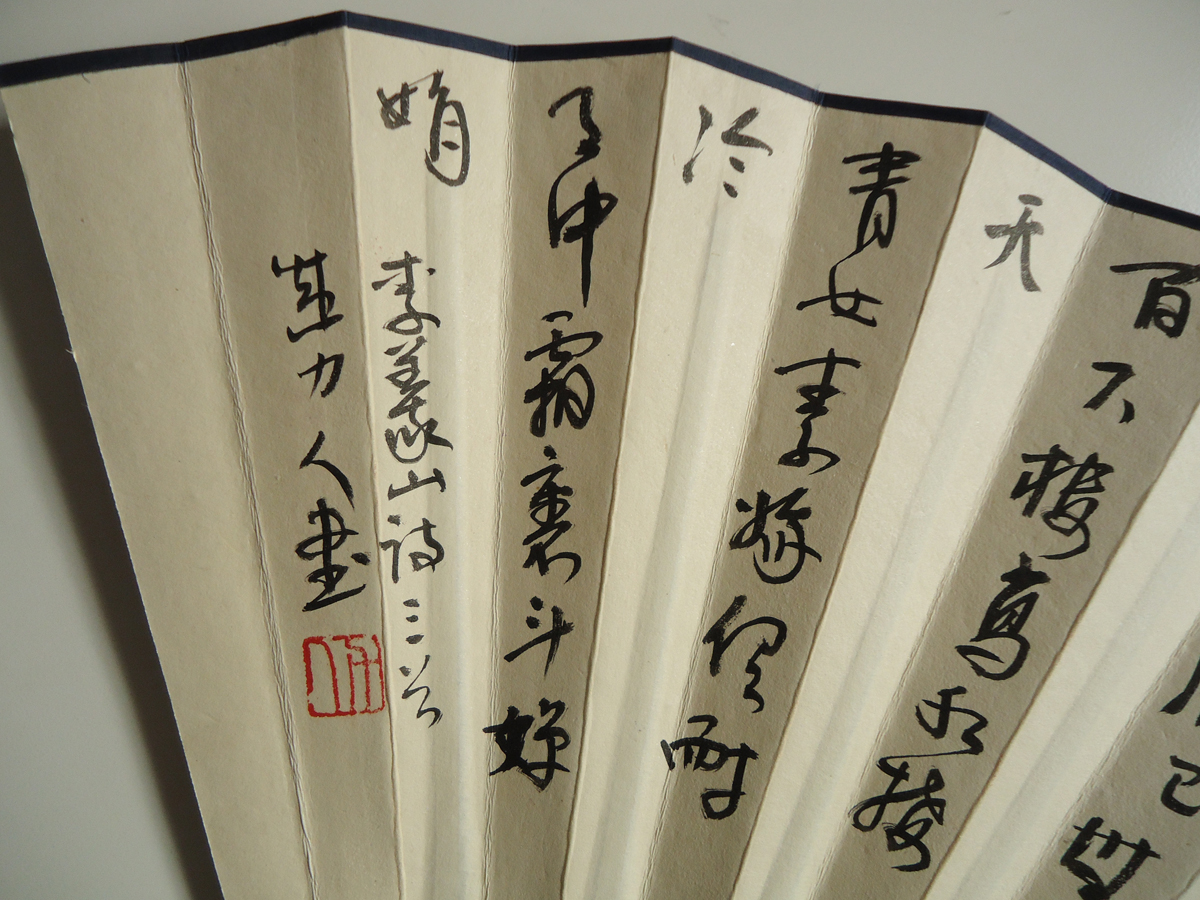 已無
百尺樓高水接
天
青女素娥俱耐
冷
月中霜裏斗嬋
娟 李義山詩三首
力人書